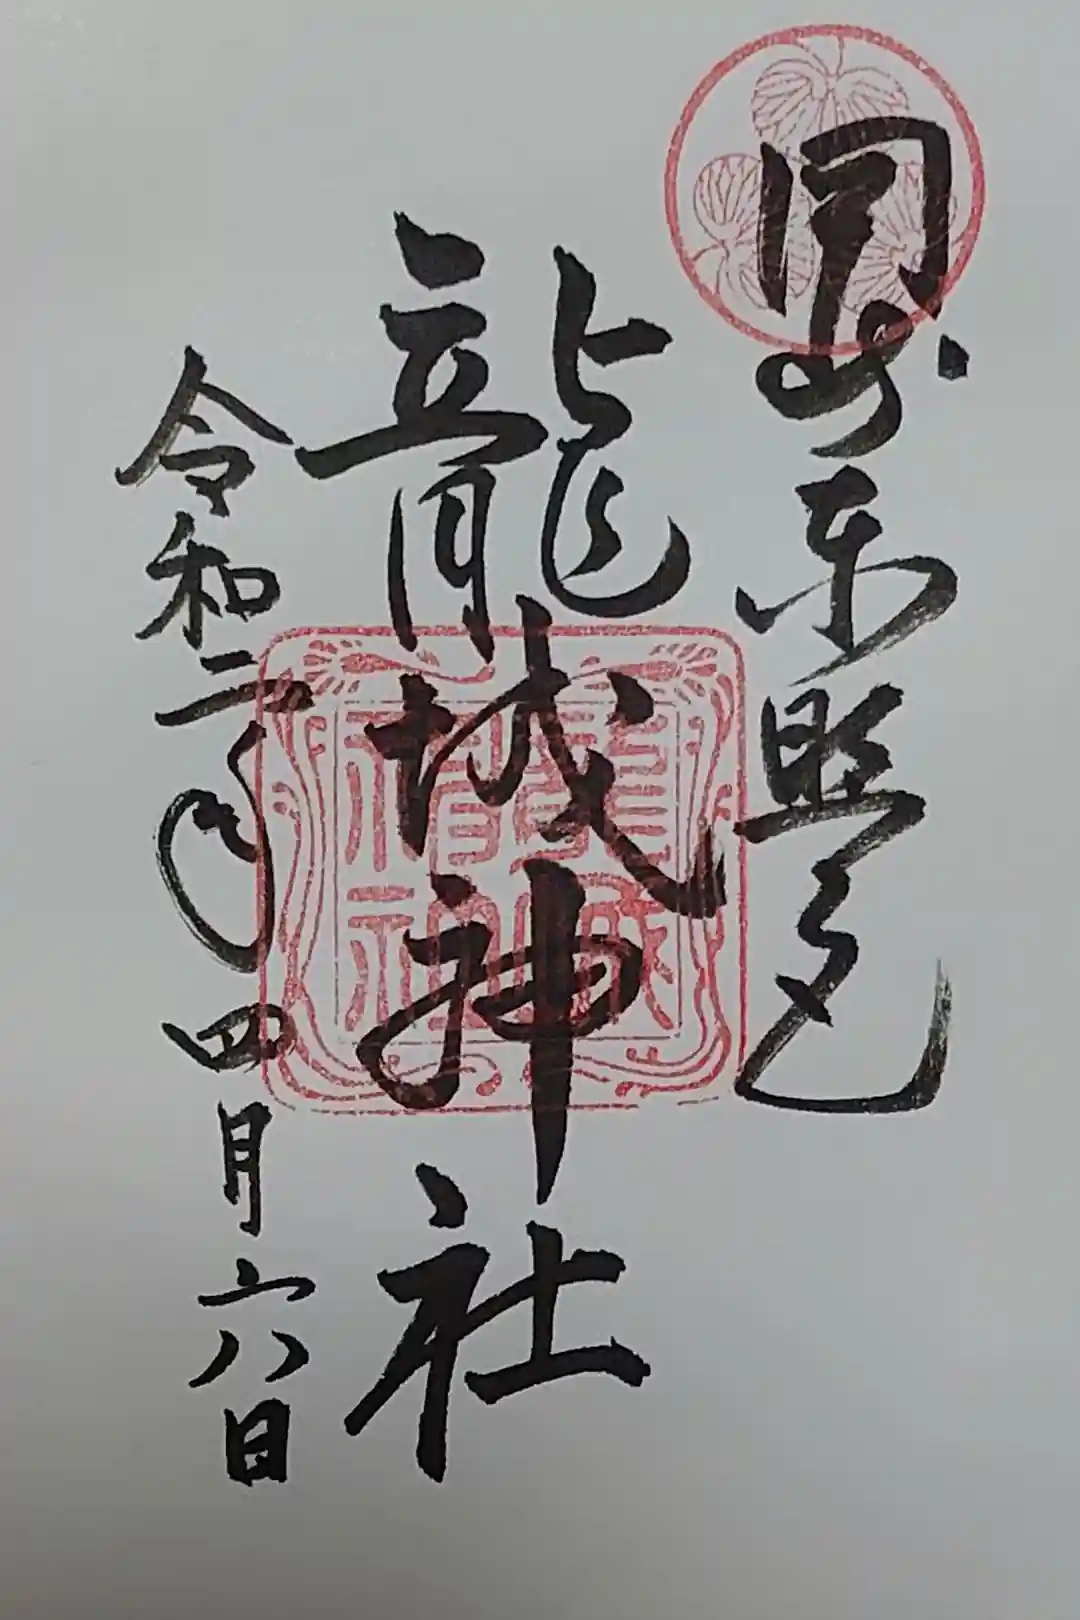 岡崎東照宮
龍城神社
令和二年四月六日
龍城神社